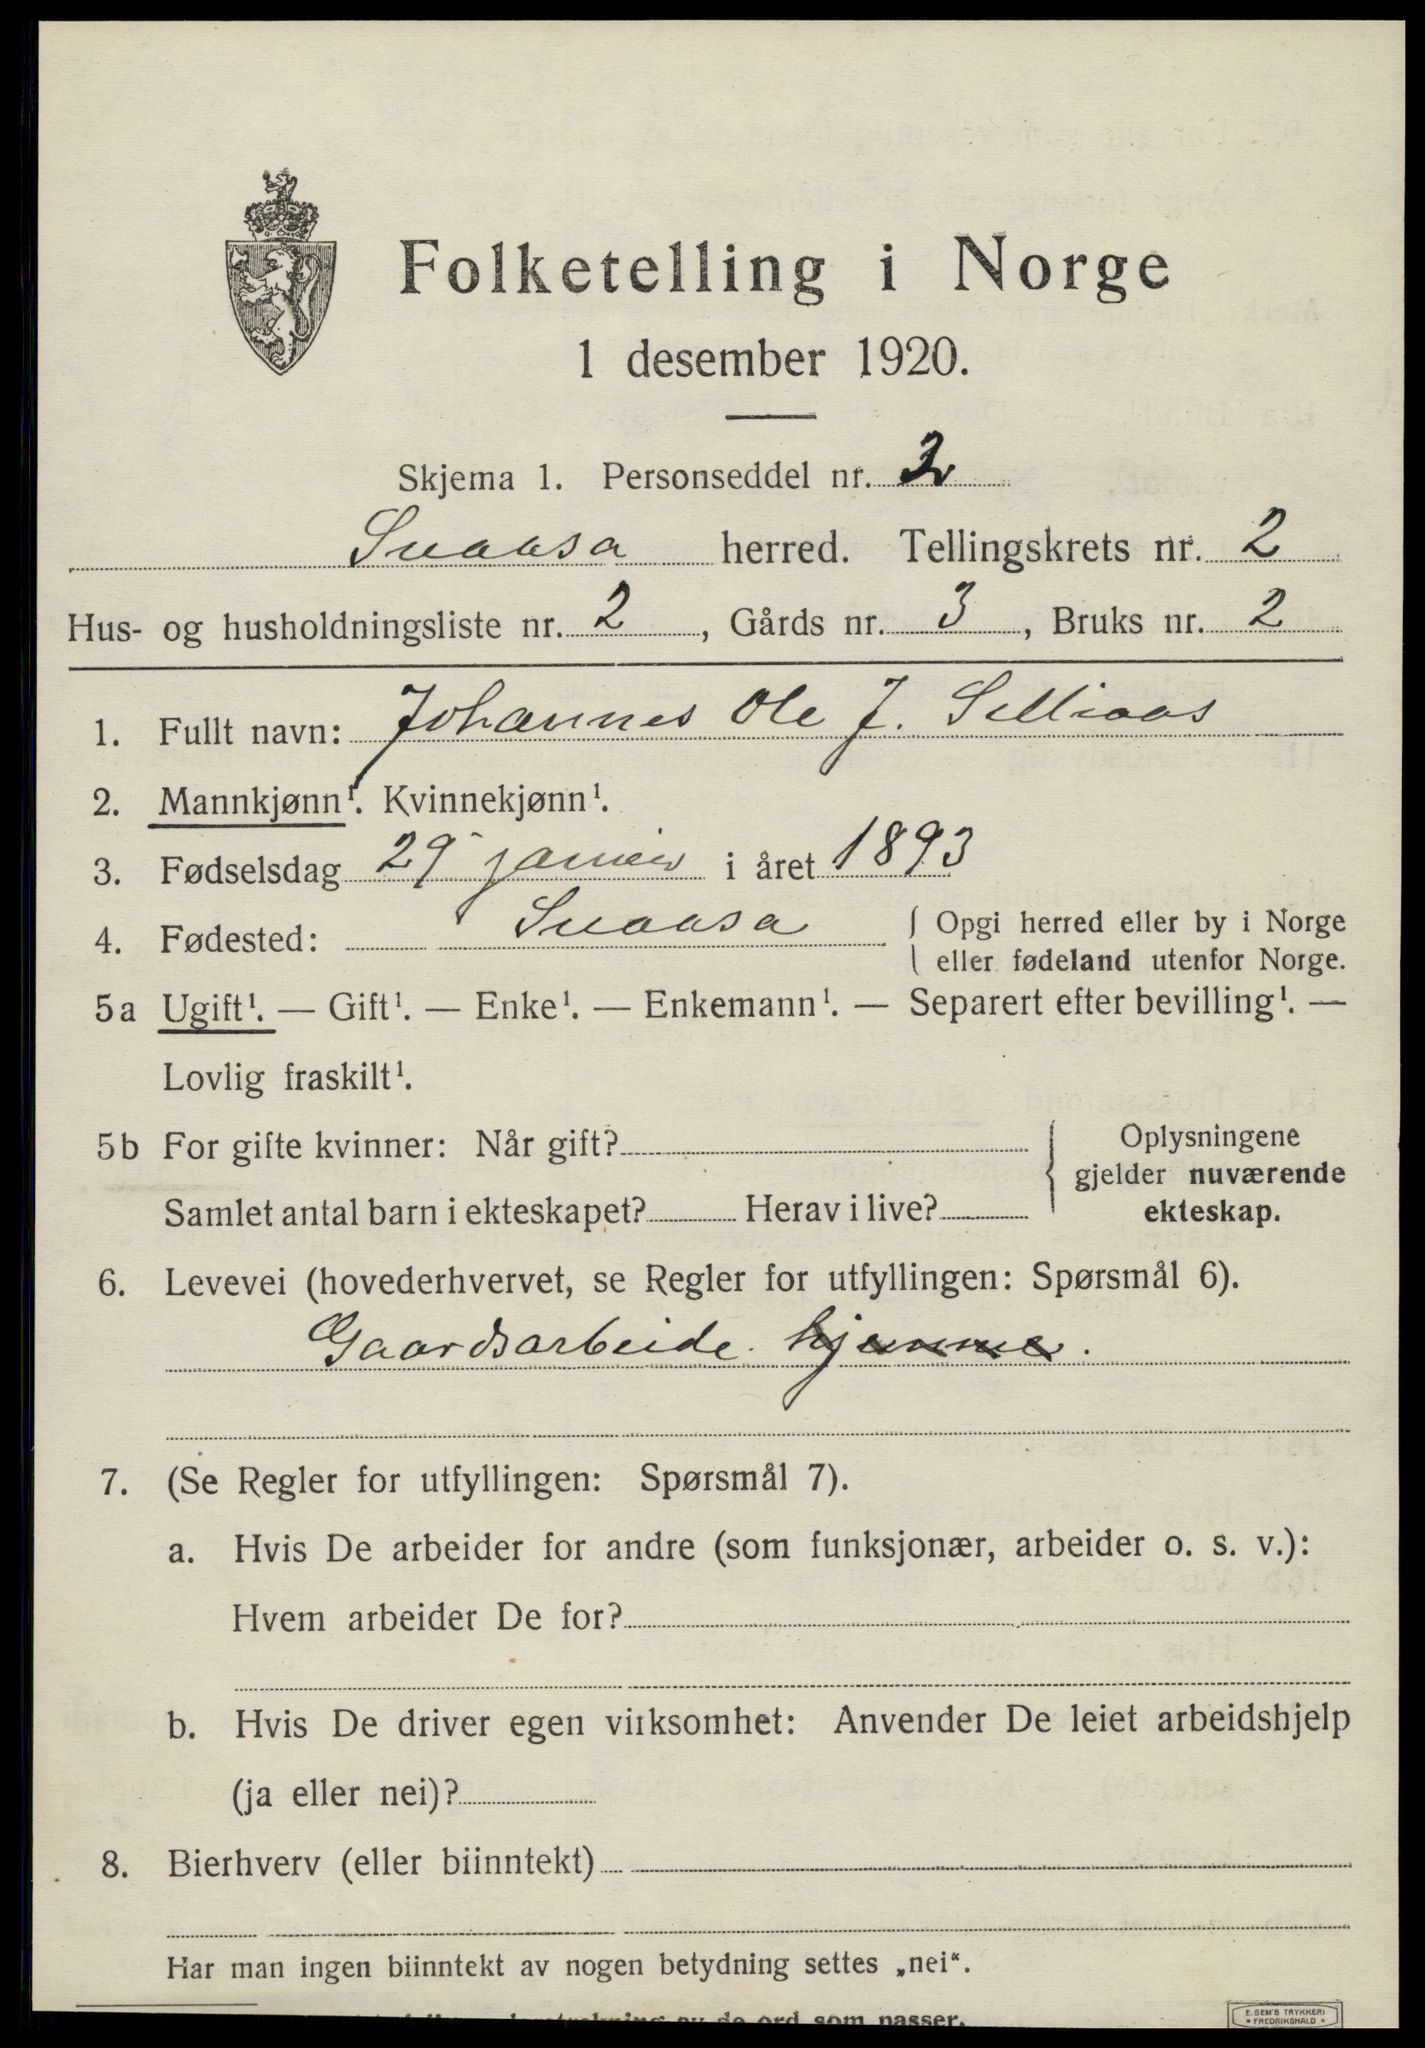 Folketelling i Norge
1 desember 1920.
Skjema 1. Personseddel nr. 2
Snaasa herred. Tellingskrets nr. 2
Hus- og husholdningsliste nr. 2, Gårds nr. 3, Bruks nr. 2
1. Fullt navn: Johannes Ole J. Selliaas
2. Mannkjønn¹. Kvinnekjønn¹.
3. Fødselsdag 29 januar i året 1893
4. Fødested: Snaasa { Opgi herred eller by i Norge
eller fødeland utenfor Norge.
5a Ugift¹. — Gift¹. — Enke¹. — Enkemann¹. — Separert efter bevilling¹. —
Lovlig fraskilt¹.
5b For gifte kvinner: Når gift? { Oplysningene
gjelder nuværende
Samlet antal barn i ekteskapet? Herav i live? ekteskap.
6. Levevei (hovederhvervet, se Regler for utfyllingen: Spørsmål 6).
Gaardsarbeide hjemme.
7. (Se Regler for utfyllingen: Spørsmål 7).
a. Hvis De arbeider for andre (som funksjonær, arbeider o. s. v.):
Hvem arbeider De for?
b. Hvis De driver egen virksomhet: Anvender De leiet arbeidshjelp
(ja eller nei)?
8. Bierhverv (eller biinntekt)
Har man ingen biinntekt av nogen betydning settes „nei“.
av de ord som passer.
E. SEM'S TRYKKERI
* FREDRIKSHALD *